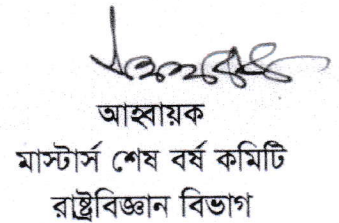 আহ্বায়ক
মাস্টার্স শেষ বর্ষ কমিটি
রাষ্ট্রবিজ্ঞান বিভাগ